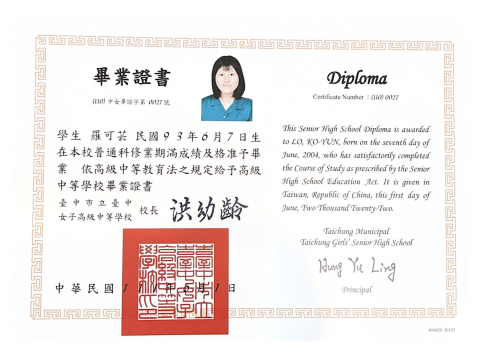 畢業證書
(110) 中女畢證字第 0027 號
學生 羅可芸 民國93年6月7日生
在本校普通科修業期滿成績及格准予畢
業 依高級中等教育法之規定給予高級
中等學校畢業證書
臺中市立臺中
女子高級中等學校
校長 洪幼齡
中華民國111年6月1日
Diploma
Certificate Number：(110) 0027
This Senior High School Diploma is awarded
to LO, KO-YUN, born on the seventh day of
June, 2004, who has satisfactorily completed
the Course of Study as prescribed by the Senior
High School Education Act. It is given in
Taiwan, Republic of China, this first day of
June, Two Thousand Twenty-Two.
Taichung Municipal
Taichung Girls' Senior High School
Hung Yu Ling
Principal